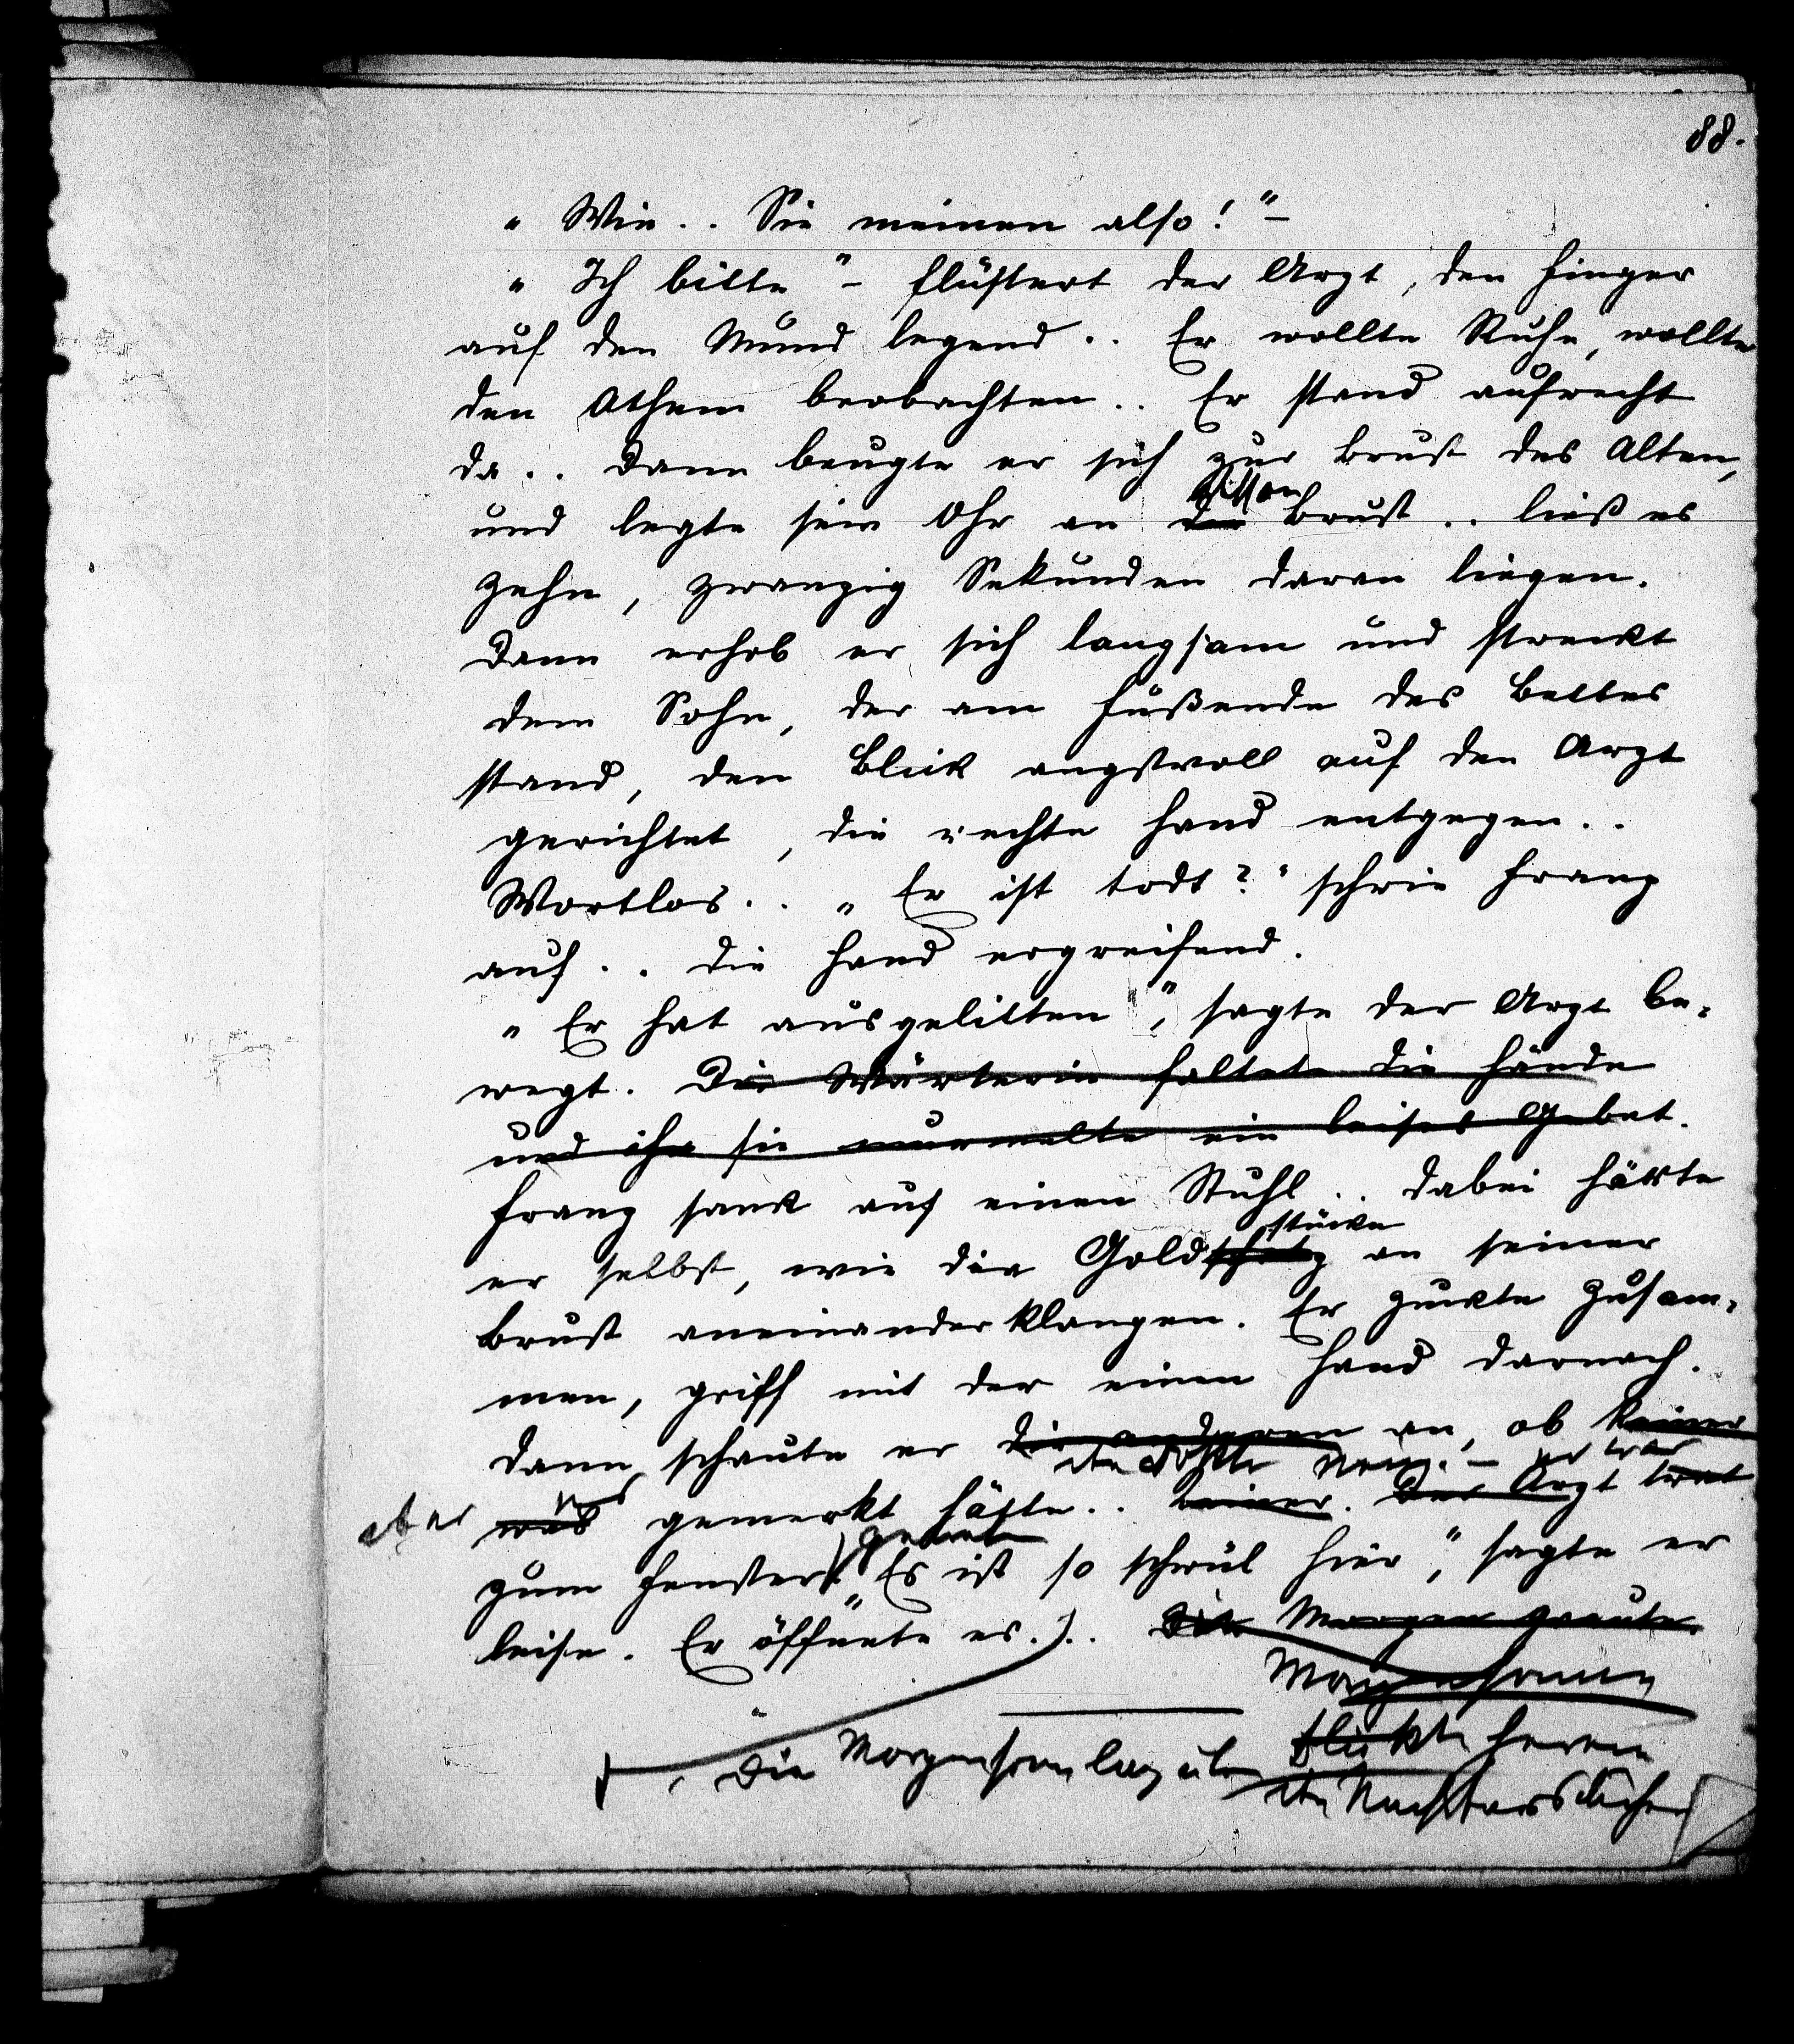 88.
„Wie.. Sie meinen also!“ –
„Ich bitte“ – flüstert der Arzt, den Finger
auf den Mund legend.. Er wollte Ruhe, wollte
den Athem beobachten.. Er stand aufrecht
da.. Dann beugte er sich zur Brust des Alten,
dessen
und legte sein Ohr an der Brust.. ließ es
zehn, zwanzig Sekunden daran liegen.
Dann erhob er sich langsam und streckt
dem Sohn, der am Fußende des Bettes
stand, den Blick angstvoll auf den Arzt
gerichtet, die rechte Hand entgegen..
Wortlos.. „Er ist todt?“ schrie Franz
auf.. die Hand ergreifend.
„Er hat ausgelitten“, sagte der Arzt be-
wegt. Die Wärterin faltete die Hände
und ihr sie murmelte ein leises Gebet.
Franz sank auf einen Stuhl.. Dabei hörte
stücke
er selbst, wie die Goldschatz an seiner
Brust aneinanderklangen. Er zuckte zusam-
men, griff mit der einen Hand darnach.
Dann schaute er die anderen an, ob keiner
der Arzt Nein. – er war
aber was was gemerkt hätte.. keiner. Der Arzt trat
getreten
zum Fenster. „Es ist so schwül hier“, sagte er
leise. Er öffnete es... Der Morgen graute.
Morgensonne
blickte herein
, Die Morgensonne lag über
den Nachbarsdächern